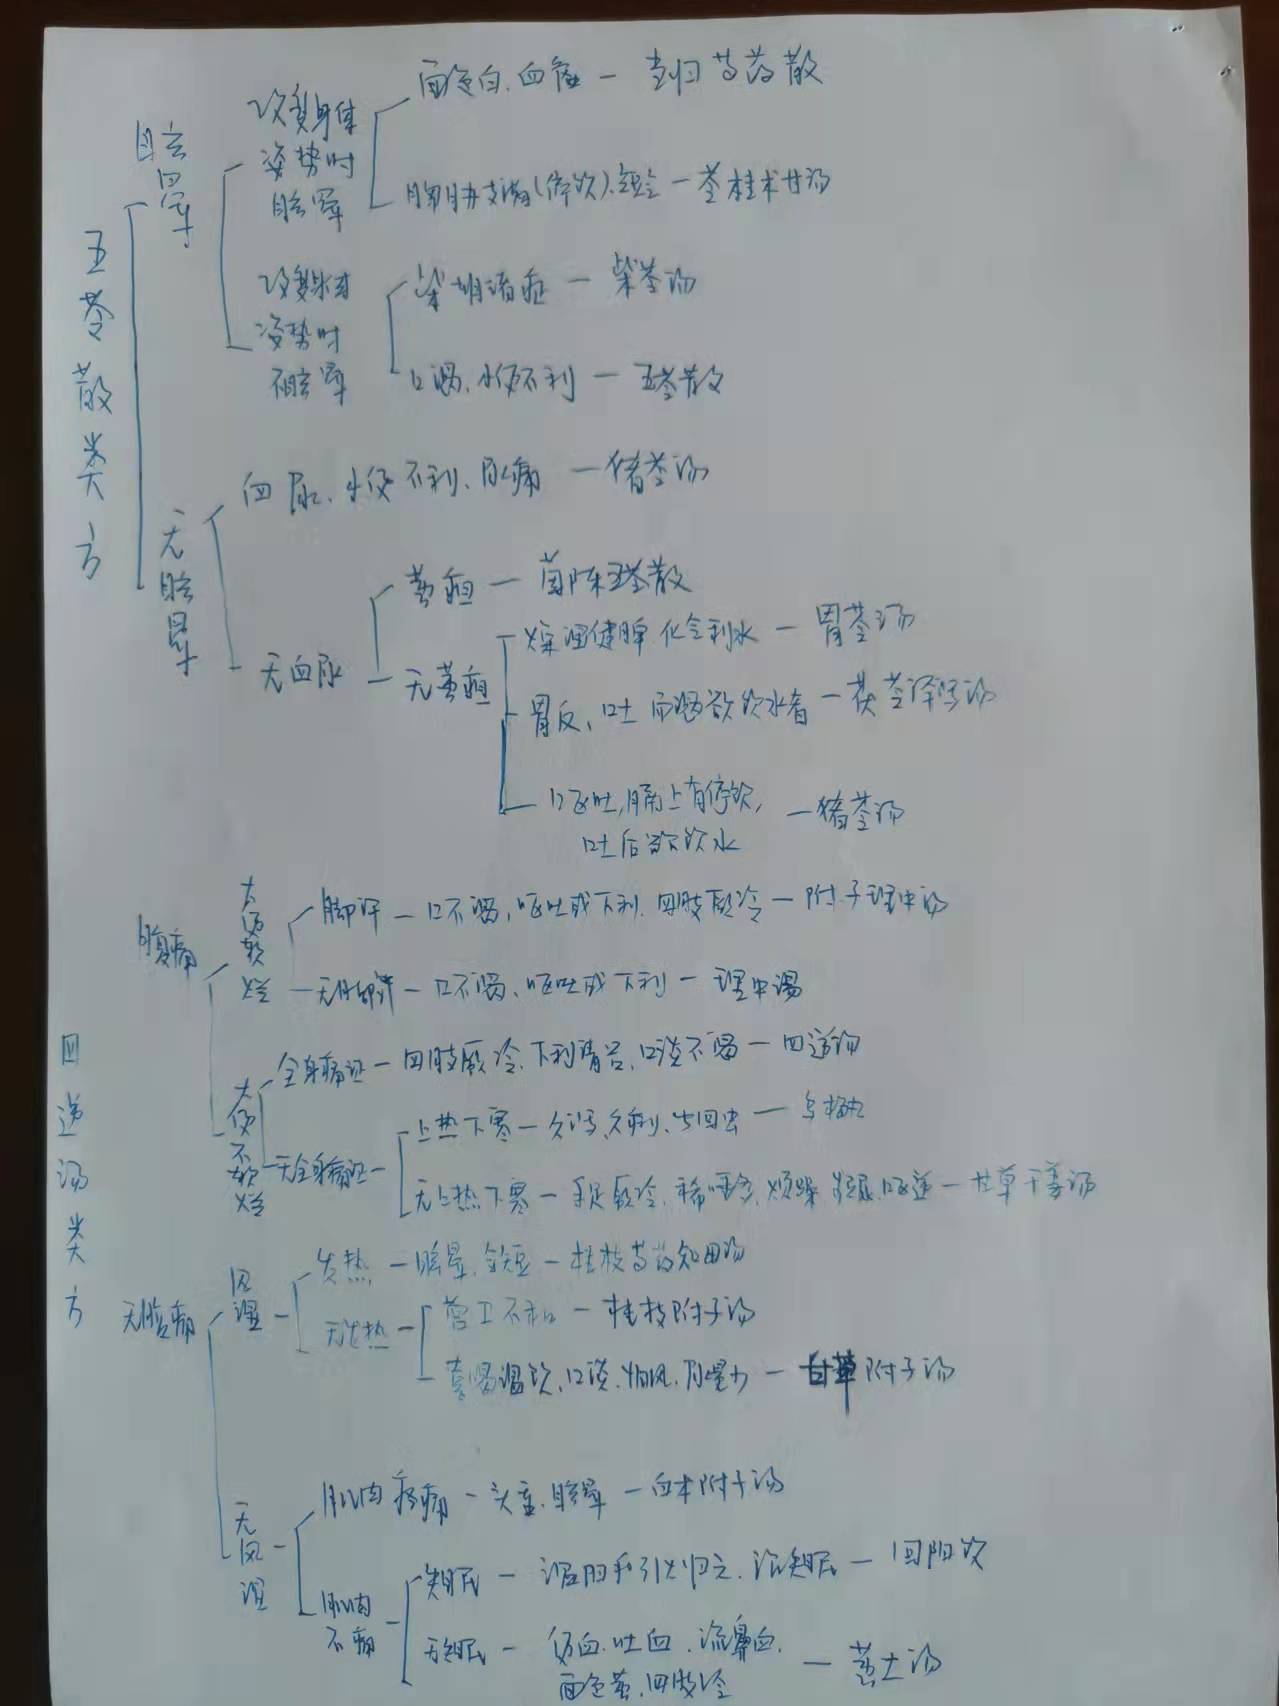 五苓散类方
眩晕
改变身体姿势时眩晕
面色白、血虚 — 当归芍药散
胸胁支满(停饮)、短气 — 苓桂术甘汤
改变身体姿势时不眩晕
柴胡诸症 — 柴苓汤
口渴、小便不利 — 五苓散
无眩晕
血尿、小便不利、尿痛 — 猪苓汤
无血尿
黄疸 — 茵陈五苓散
无黄疸
燥湿健脾 化气利水 — 胃苓汤
胃反、吐而渴欲饮水者 — 茯苓泽泻汤
呕吐,膈上有停饮,
吐后欲饮水
— 猪苓汤
四逆汤类方
腹痛
大便软烂
脚汗 — 口不渴,呕吐或下利、四肢厥冷 — 附子理中汤
无脚汗 — 口不渴、呕吐或下利 — 理中湯
大便不软烂
全身痛证 — 四肢厥冷、下利清谷、口淡不渴 — 四逆汤
无全身痛证
上热下寒 — 久泻、久利、吐回虫 — 乌梅丸
无上热下寒 — 手足厥冷、稀唾多、烦躁、呕逆 — 甘草干姜汤
无腹痛
风湿
发热 — 眩晕、气短 — 桂枝芍药知母汤
无发热
营卫不和 — 桂枝附子汤
喜喝温饮、口淡、怕风、尿量少 — 甘草附子汤
无风湿
肌肉疼痛 — 头重、眩晕 — 白术附子汤
肌肉不痛
失眠 — 温阳和引火归元、治失眠 — 回阳饮
无失眠 — 便血、吐血、流鼻血、
面色黄、四肢冷
— 黄土汤